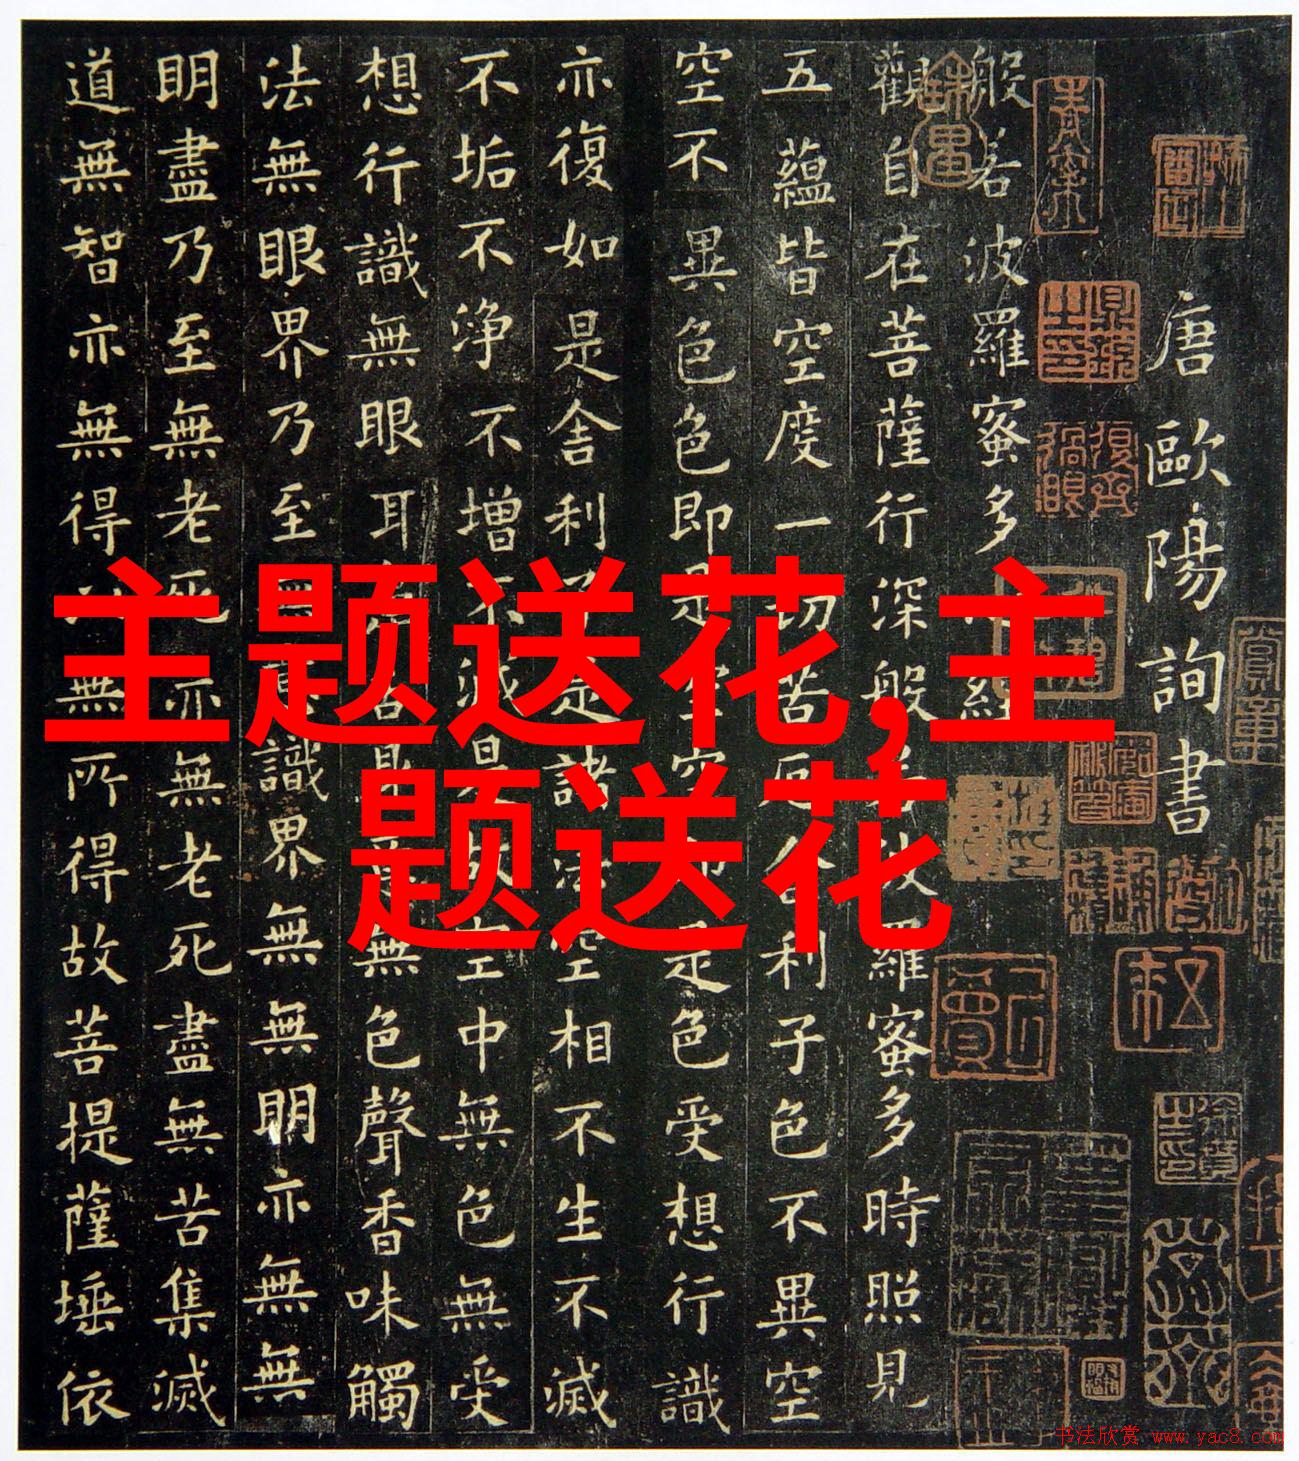 唐歐陽詢書
般若波羅蜜多心經
觀自在菩薩行深般若波羅蜜多時照見
五蘊皆空度一切苦厄舍利子色不異空
空不異色色即是空空即是色受想行識
亦復如是舍利子是諸法空相不生不滅
不垢不淨不增不減是故空中無色無受
想行識無眼耳鼻舌身意無色聲香味觸
法無眼界乃至無意識界無無明亦無無
明盡乃至無老死亦無老死盡無苦集滅
道無智亦無得以無所得故菩提薩埵依
主题送花,主
题送花
书法欣赏 www.yac8.com